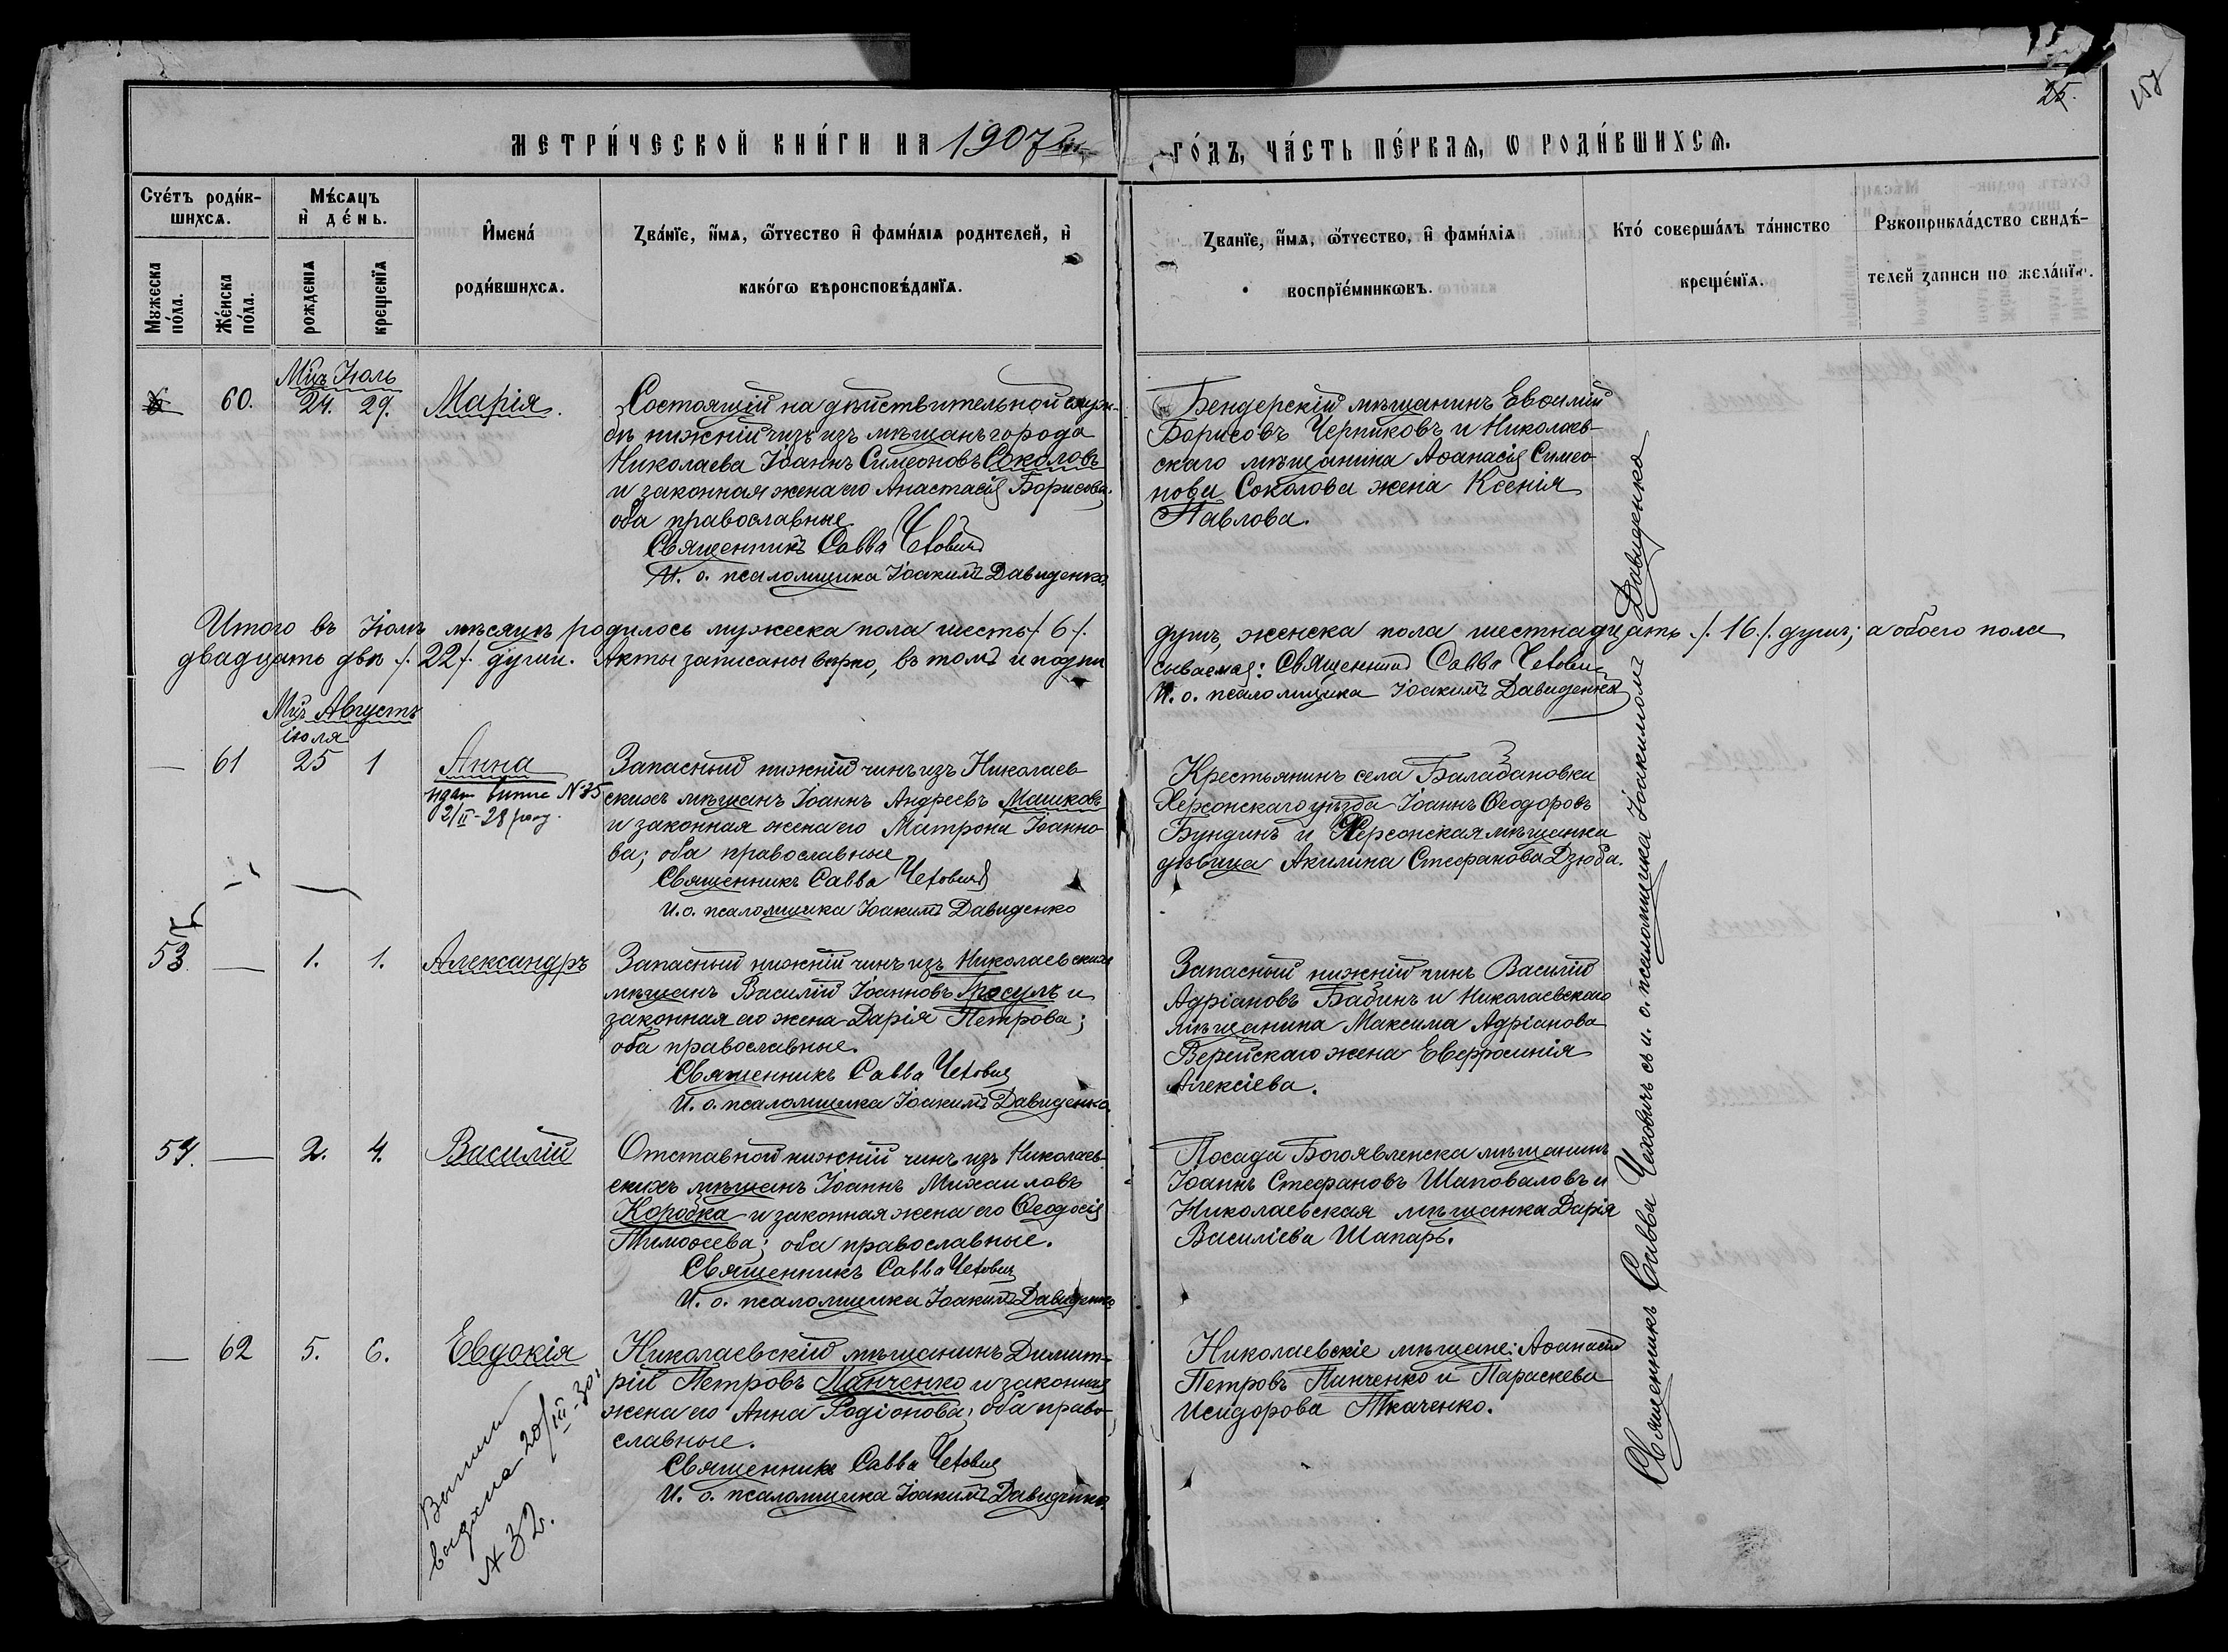 25.
158
МЕТРИ́ЧЕСКОЙ КНИ́ГИ НА 1907й
ГО́ДЪ, ЧА́СТЬ ПЕ́РВАѦ, Ѡ РОДИ́ВШИХСѦ.
Сче́тъ роди́в-
шихсѧ.
Мѣ́сѧцъ
и҆ де́нь.
И҆мена́
роди́вшихсѧ.
Зва́нїе, и҆́мѧ, ѻ҆́тчество и҆ фами́лїѧ родителей, и҆
како́гѡ вѣроисповѣ́данїѧ.
Зва́нїе, и҆́мѧ, ѻ҆́тчество, и҆ фами́лїѧ
воспрїе́мникѡвъ.
Кто́ соверша́лъ та́инство
креще́нїѧ.
Рꙋкоприкла́дство свидѣ́-
телей записи по жела́нїю.
Мꙋжеска
по́ла.
Же́нска
по́ла.
рожденїѧ
крещенїѧ
Мцъ Іюль
60. 24. 29. Марія.
Состоящій на дѣйствительной служ-
бѣ нижній чинъ изъ мѣщанъ города
Николаева Іоаннъ Симеоновъ Соколовъ
и законная жена его Анастасія Борисова;
оба православные
Священникъ Савва Чехович
И. о. псаломщика Іоакимъ Давиденко.
Бендерскій мѣщанинъ
Борисовъ Черниковъ и Николаев-
скаго мѣщанина Аѳанасія Симео-
нова Соколова жена Ксенія
Павлова.
Итого въ Іюлѣ мѣсяцѣ родилось мужеска пола шесть /. 6 /. душъ, женска пола шестнадцать /. 16 /. душъ; а обоего пола
двадцать двѣ /. 22 /. души. Акты записаны вѣрно, въ томъ и подпи
сываемся: Священникъ Савва Чехович
И. о. псаломщика Іоакимъ Давиденко
Мцъ Августъ
іюля
— 61 25 1 Анна
N 35
2/II-28
Запасный нижній чинъ изъ Николаев
скихъ мѣщанъ Іоаннъ Андреевъ Машковъ
и законная жена его Матрона Іоанно-
ва; оба православные
Священникъ Савва Чехович
И. о. псаломщика Іоакимъ Давиденко
Крестьянинъ села Балабановки
Херсонскаго уѣзда Іоаннъ Ѳеодоровъ
Бундинъ и Херсонская мѣщанка
дѣвица Акилина Стефанова Дзюба.
53. — 1. 1. Александръ
Запасный нижній чинъ изъ Николаевскихъ
мѣщанъ Василій Іоанновъ Гросулъ и
законная его жена Дарія Петрова;
оба православные.
Священникъ Савва Чехович
И. о. псаломщика Іоакимъ Давиденко.
Запасный нижній чинъ Василій
Адріановъ Бабинъ и Николаевскаго
мѣщанина Максима Адріанова
Верейскаго жена Евфросинія
Алексіева.
54. — 2. 4. Василій
Отставной нижній чинъ изъ Николаев-
скихъ мѣщанъ Іоаннъ Михаиловъ
Коробка и законная жена его Ѳеодосія
Тимоѳеева; оба православные.
Священникъ Савва Чехович
И. о. псаломщика Іоакимъ Давиденко
Посада Богоявленска мѣщанинъ
Іоаннъ Стефановъ Шаповаловъ и
Николаевская мѣщанка Дарія
Василіева Шапарь.
— 62 5. 6. Евдокія
Выпись
выдана 20/III-30.
N 32.
Николаевскій мѣщанинъ Димит-
рій Петровъ Панченко и законная
жена его Анна Родіонова; оба право-
славные.
Священникъ Савва Чехович
И. о. псаломщика Іоакимъ Давиденко.
Николаевскіе мѣщане: Аѳанасій
Петровъ Панченко и Параскева
Исидорова Ткаченко.
Священникъ Савва Чеховичъ съ и. о. псаломщика Іоакимомъ Давиденко